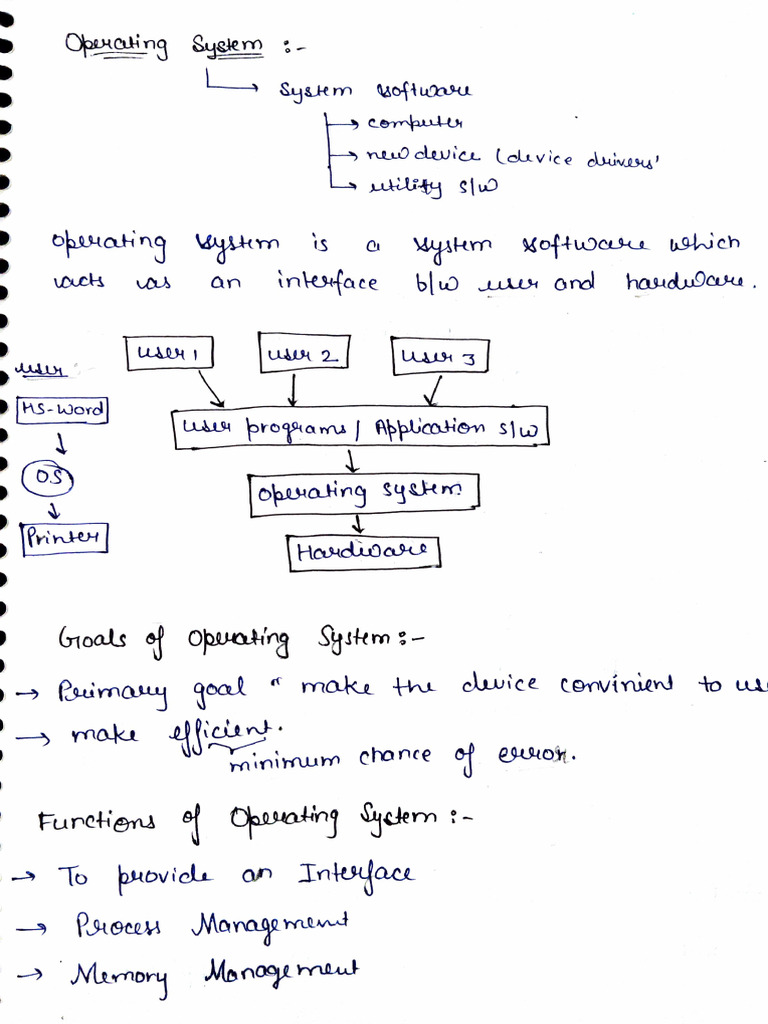 Operating System :-
System software
computer
new device (device drivers'
utility s/w
operating system is a system software which
acts as an interface b/w user and hardware.
user 1 user 2 user 3
user :
MS-Word
user programs / Application s/w
OS
operating system
Printer
Hardware
Goals of Operating System :-
→ Primary goal " make the device convinient to us
→ make efficient.
minimum chance of error.
Functions of Operating System :-
→ To provide an Interface
→ Process Management
→ Memory Management